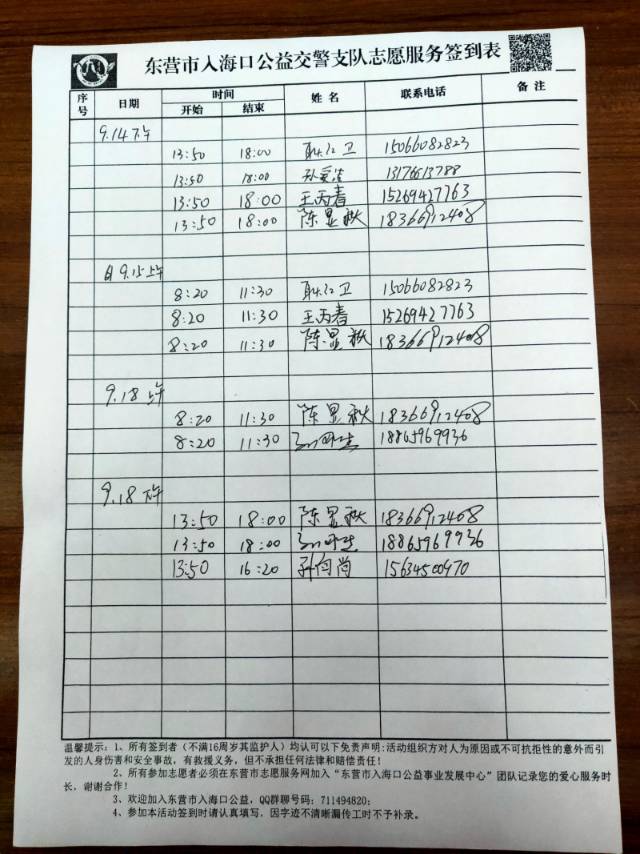 东营市入海口公益交警支队志愿服务签到表
序号 日期 时间 姓名 联系电话 备注
开始 结束
9.14下午
13:50 18:00 耿红卫 15066082823
13:50 18:00 孙爱洁 13176613788
13:50 18:00 王丙春 15269427763
13:50 18:00 陈显秋 18366912408
9.15上午
8:20 11:30 耿红卫 15066082823
8:20 11:30 王丙春 15269427763
8:20 11:30 陈显秋 18366912408
9.18 上午
8:20 11:30 陈显秋 18366912408
8:20 11:30 18865969936
9.18 下午
13:50 18:00 陈显秋 18366912408
13:50 18:00 18865969936
13:50 16:20 孙向尚 15634500970
温馨提示：1、所有签到者（不满16周岁其监护人）均认可以下免责声明:活动组织方对人为原因或不可抗拒性的意外而引
发的人身伤害和安全事故，有救援义务，但不承担任何法律和赔偿责任！
2、所有参加志愿者必须在东营市志愿服务网加入“东营市入海口公益事业发展中心”团队记录您的爱心服务时
长，谢谢合作！
3、欢迎加入东营市入海口公益，QQ群聊号码：711494820；
4、参加本活动签到时请认真填写，因字迹不清晰漏传工时不予补录。